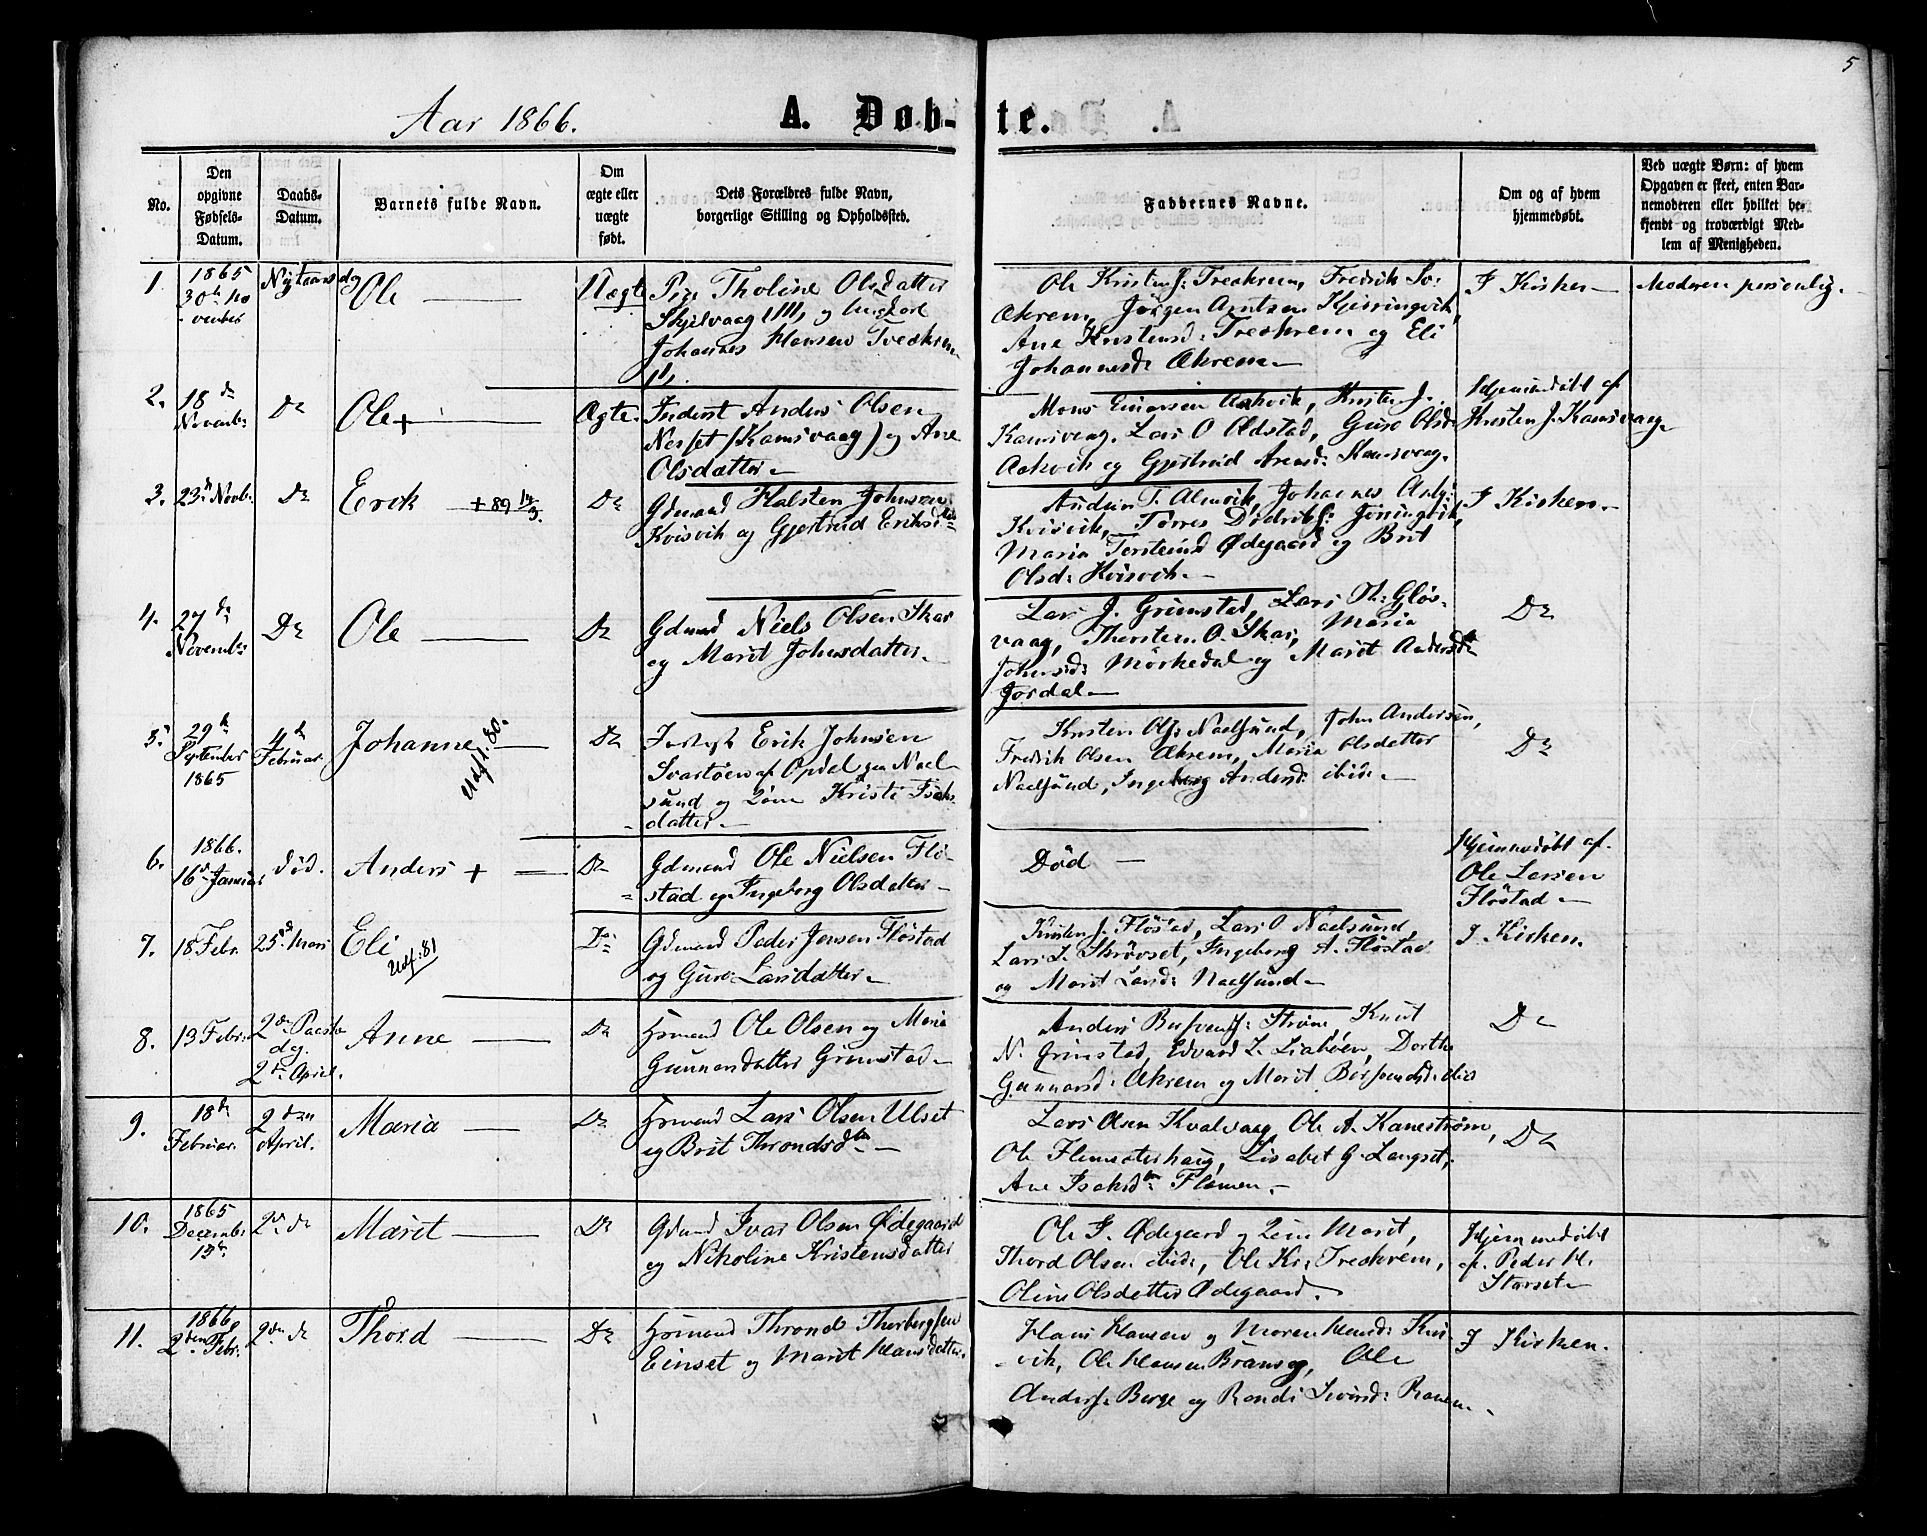 5
Aar 1866.
A. Døb-te.
No.
Den opgivne Fødsels-Datum.
Daabs-Datum.
Barnets fulde Navn.
Om ægte eller uægte født.
Dets Forældres fulde Navn, borgerlige Stilling og Opholdssted.
Faddernes Navne.
Om og af hvem hjemmedøbt.
Ved uægte Børn: af hvem Opgaven er skeet, enten Bar-nemoderen eller hvilket be-kjendt og troværdigt Med-lem af Menigheden.
1.
1865
30te No
vember
Nytaarsdag
Ole
Uægte
Pige Tholine Olsdatter
Skjelvaag og Ungkarl
Johannes Hansen Treekrem
Ole Kristens: Treekrem, Fredrik
Ækrem, Jörgen Arntsen Kjöringvik,
Ane Kristensd: Treekrem og Eli
Johannesd: Ækrem
I Kirken
Moderen personlig.
2.
18de
Novemb:
Do
Ole +
Ægte.
Inderst Anders Olsen
Nesset (Kamsvaag) og Ane
Olsdatter
Mons Einersen Aakvik, Kristen J.
Kamsvaag, Lars O Oldstad, Guro Olsd:
Aakvik og Gjertrud Arensd: Kamsvaag.
Hjemmedöbt af
Kristen J. Kamsvaag
3.
23de Novb.
Do
Erik + 89
Do
Gdmand Halsten Johnsen
Kvisvik og Gjertrud Eriksd:
Kvisvik, Torres Jöringvik,
Maria Torsteind Ødegaard og Brit
Olsd: Kvisvik.
I Kirken
4.
27de
Novemb:
Do
Ole
Do
Gdmand Niels Olsen Skar
og Marit Johnsdatter
Lars J. Grimstad, Lars Th: Glös-
vaag, Thorstein O. Skar, Maria
Johnsd: Mörkedal og Marit Andersd:
Jordal
Do
5.
29de
September
1865
4de
Februar
Johanne
Udfl. 80.
Do
Erik Johnsen
Svartöien af Opdal Nael-
sund og Kristi Isaks-
datter
Kristen Ols: Naelsund, John Andersen,
Fredrik Olsen Ækrem, Maria Olsdatter
Naelsund, Ingeborg Andersd: ibid:
Do
6.
1866.
16de Januar
död.
Anders +
Do
Gdmand Ole Nielsen Flö-
stad og Ingeborg Olsdatter
Död
Hjemmedöbt af
Ole Larsen
Flöstad
7.
18 Febr.
25de Mars
Eli
Udf: 81
Do
Gdmand Peder Jensen Flöstad
og Guro Larsdatter
Kristen J. Flöstad, Lars O Naelsund,
Lars L. Skrövset, Ingeborg A. Flöstad
og Marit Larsd: Naelsund
I Kirken
8.
13 Febr.
2den Paaske
dag.
2de April.
Anne
Do
Hsmand Ole Olsen og Maria
Gunnersdatter Grimstad
Anders Strøm, Knut
N. Grimstad, Edvard L. Liahöen, Dorthe
Gunnersd: Ækrem og Marit
Do
9.
18de
Februar.
2den
April.
Maria
Do
Hsmand Lars Olsen Ulset
og Brit Throndsdtr
Lars Olsen Kvalvaag, Ole A. Kaneström,
Ole Flemsæterhaug, Lisabet G. Langset,
Ane Isaksdtr Flemmen.
Do
10.
1865
Decemb:
2de do
Marit
Do
Gdmand Ivar Olsen Ødegaard
og Nikoline Kristensdatter
Ole I. Ødegaard Marit,
Thord Olsen ibid:, Ole Kr: Treekrem,
Oline Olsdatter Ødegaard.
Hjemmedöbt
af Peder H.
Storset
11.
1866,
2den Febr.
2den do
Thord
Do
Hsmand Thrond Thorbergsen
Einset og Marit Hansdatter
Hans Hansen og Maren Hansd: Kris-
vik, Ole Hansen Bræmseg, Ole
Anders: Berge og Randi Sivertsd: Ranem
I Kirken.